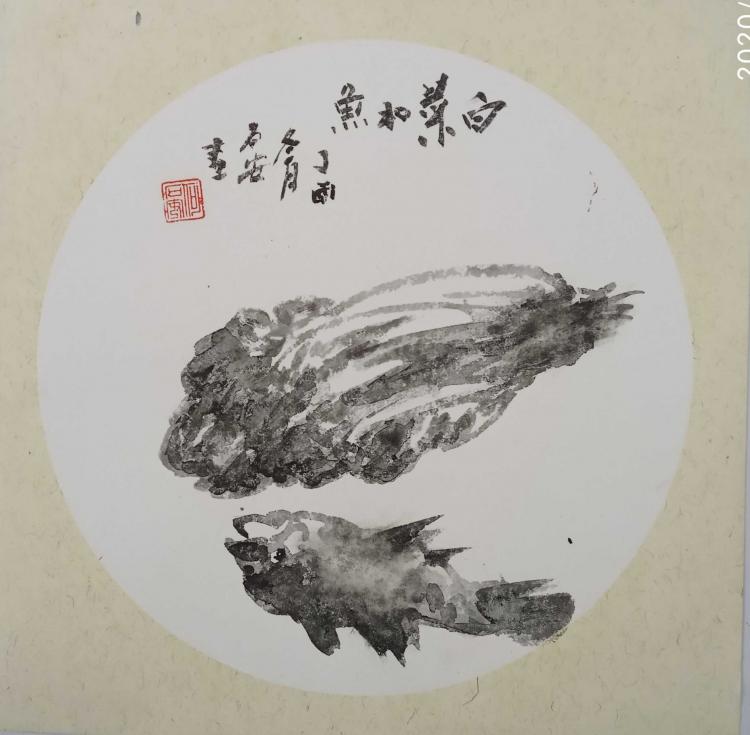 白菜和魚
丁酉
冬月
石安
畫
2020/